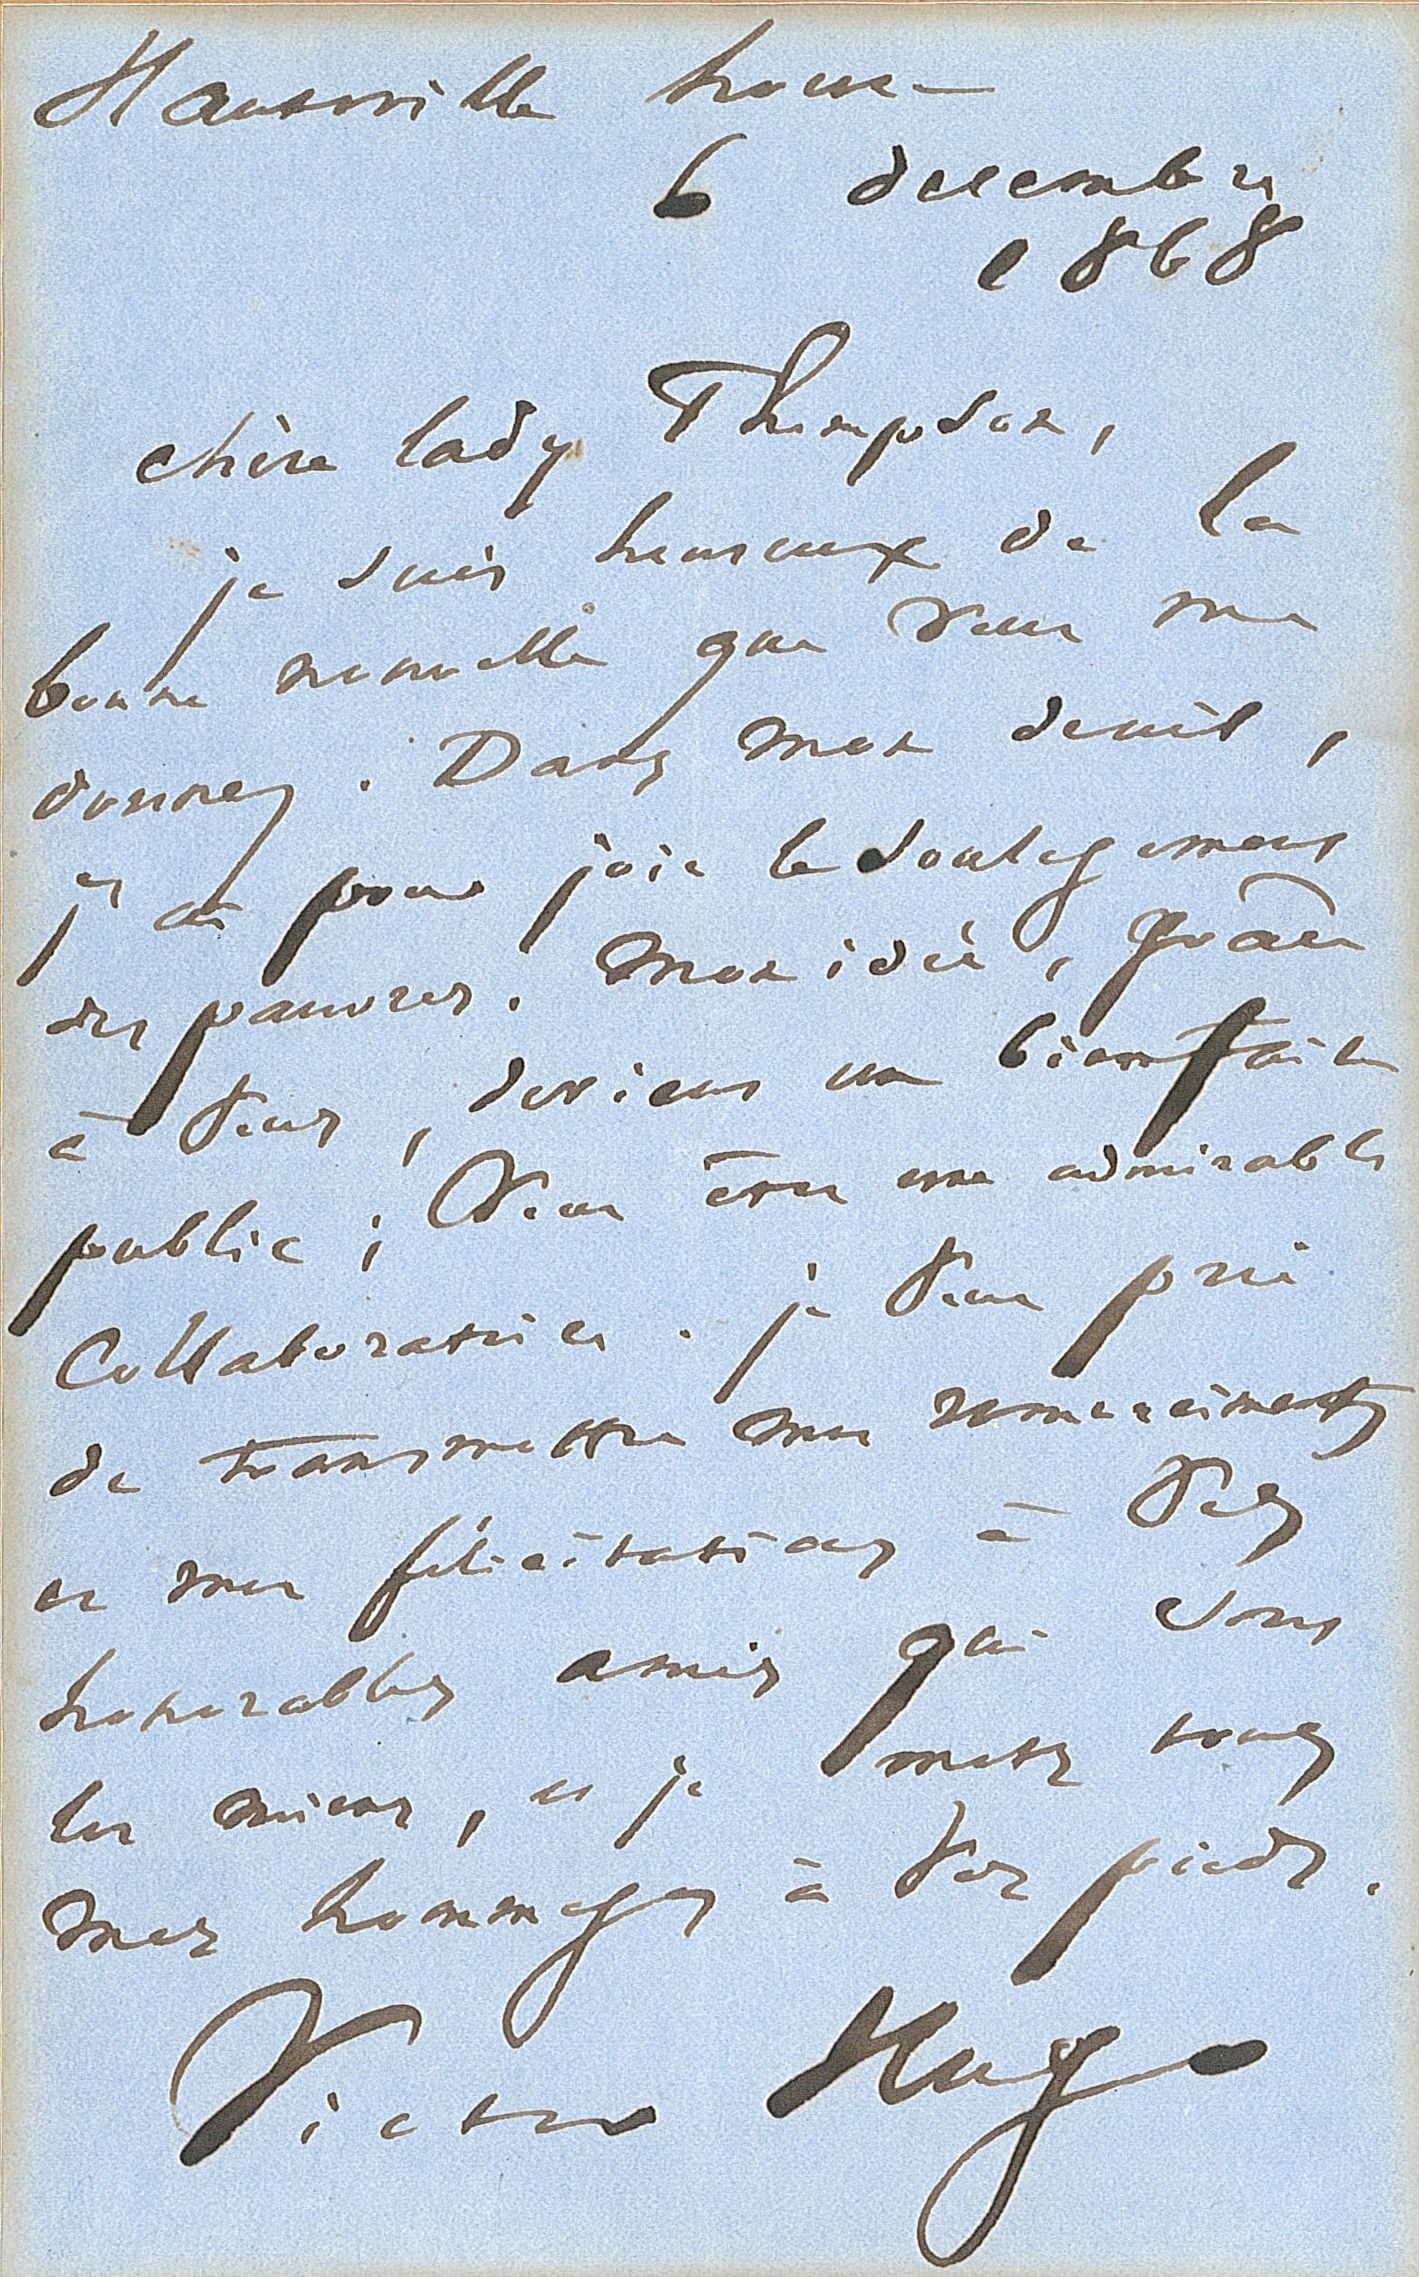 Hauteville house
6 decembre
1868
chère lady Thompson,
je suis heureux de la
bonne nouvelle que vous me
donnez. Dans mon deuil,
j'ai pour joie le soulagement
des pauvres. Mon idée, grâce
à vous, devient un bienfait
public ; vous êtes une admirable
collaboratrice. je vous prie
de transmettre mes remercîments
et mes félicitations à vos
honorables amis qui sont
les miens, et je mets tous
mes hommages à vos pieds.
Victor Hugo